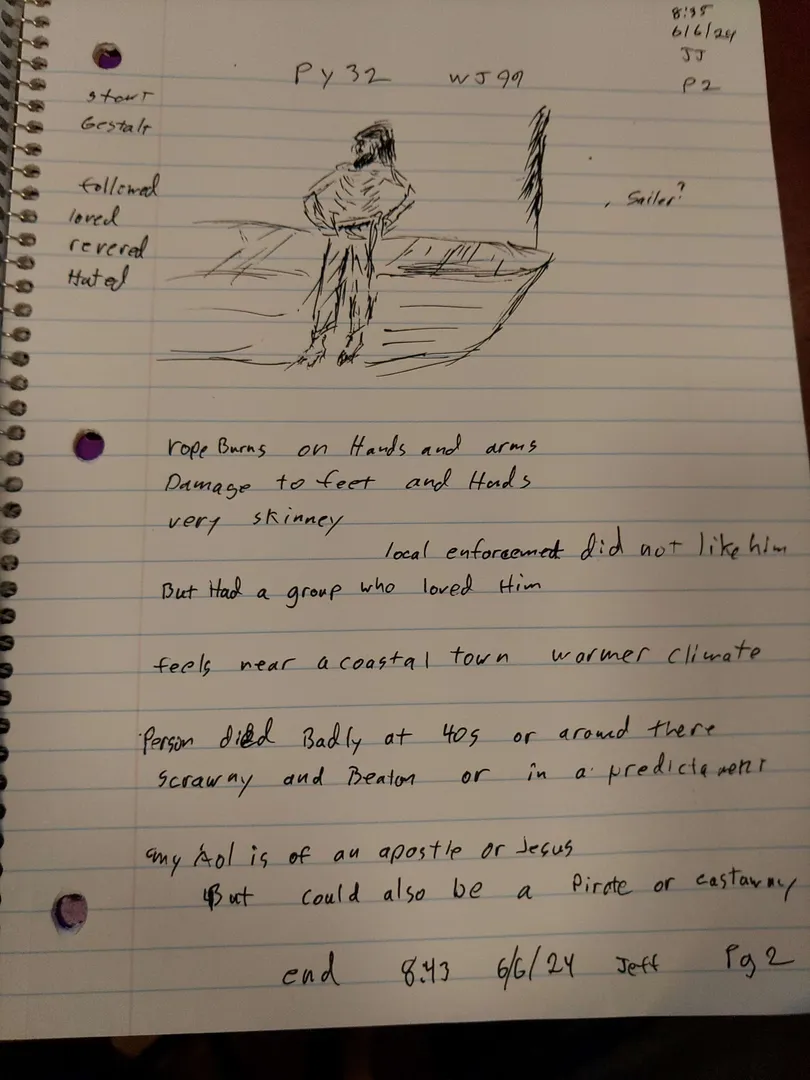 8:35
6/6/24
JJ
P2
PY32 WJ99
start
Gestalt
followed
loved
revered
Hated
Sailer?
rope Burns on Hands and arms
Damage to feet and Hads
very skinney
local enforcement did not like him
But Had a group who loved Him
feels near a coastal town warmer climate
Person died Badly at 40s or around there
scrawny and Beaton or in a predicament
my Aol is of an apostle or Jesus
But could also be a Pirate or castaway
end 8:43 6/6/24 Jeff Pg 2